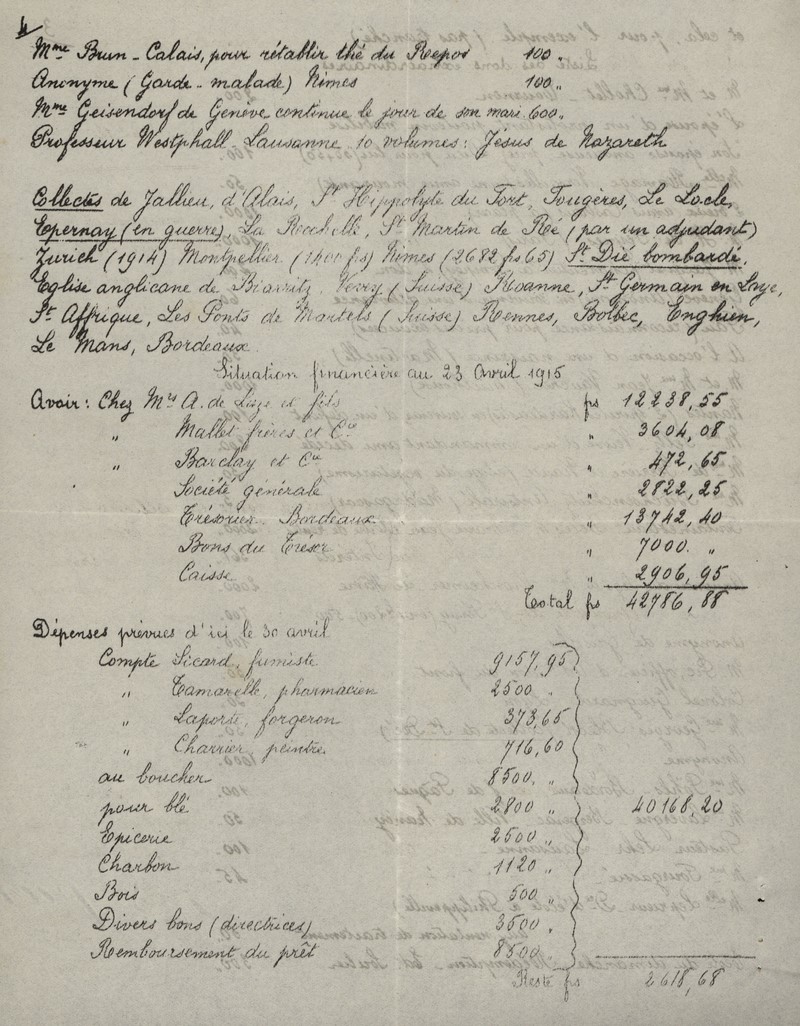 4
Mme Brun - Calais, pour rétablir thé du Repos 100 "
Anonyme (Garde - malade) Nîmes 100 "
Mme Geisendorf de Genève continue le jour de son mari 600 "
Professeur Westphall - Lausanne 10 volumes: Jésus de Nazareth
Collectes de Jallieu, d'Alais, St Hippolyte du Fort, Fougères, Le Locle,
Epernay (en guerre), La Rochelle, St Martin de Ré (par un adjudant)
Zurich (1914) Montpellier (1400 fs) Nîmes (2682 frs 65) St Dié bombardé,
Eglise anglicane de Biarritz. (Suisse) Roanne, St Germain en Laye,
St Affrique, Les Ponts de Martels (Suisse) Rennes, Bolbec, Enghien,
Le Mans, Bordeaux
Situation financière au 23 Avril 1915
Avoir: Chez Mrs A. de et fils frs 12238,55
" Mallet frères et Cie " 3604,08
" Barclay et Cie " 472,65
Société générale " 2822,25
Trésorier Bordeaux " 13742,40
Bons du Trésor " 7000 "
Caisse " 2906,95
Total frs 42786,88
Dépenses prévues d'ici le 30 avril
Compte Sicard, fumiste 9157,95
" Tamarelle, pharmacien 2500 "
" Laporte, forgeron 373,65
" Charrier, peintre 716,60
au boucher 8500, "
pour blé 2800 " 40168,20
Epicerie 2500 "
Charbon 1120 "
Bois 500 "
Divers bons (directrices) 3500 "
Remboursement du prêt 8500 "
Reste frs 2618,68